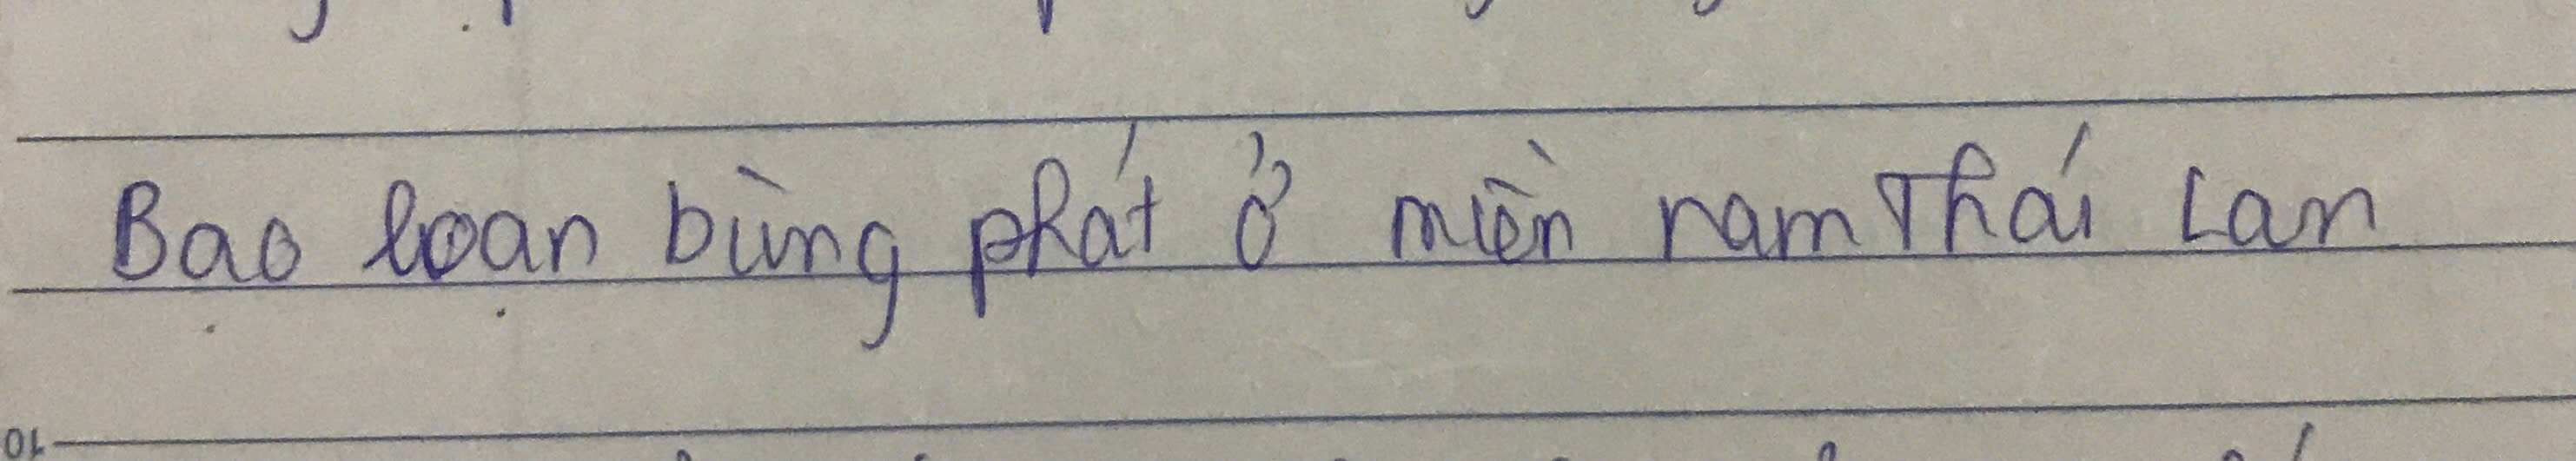 Bạo loạn bùng phát ở miền nam Thái Lan
10